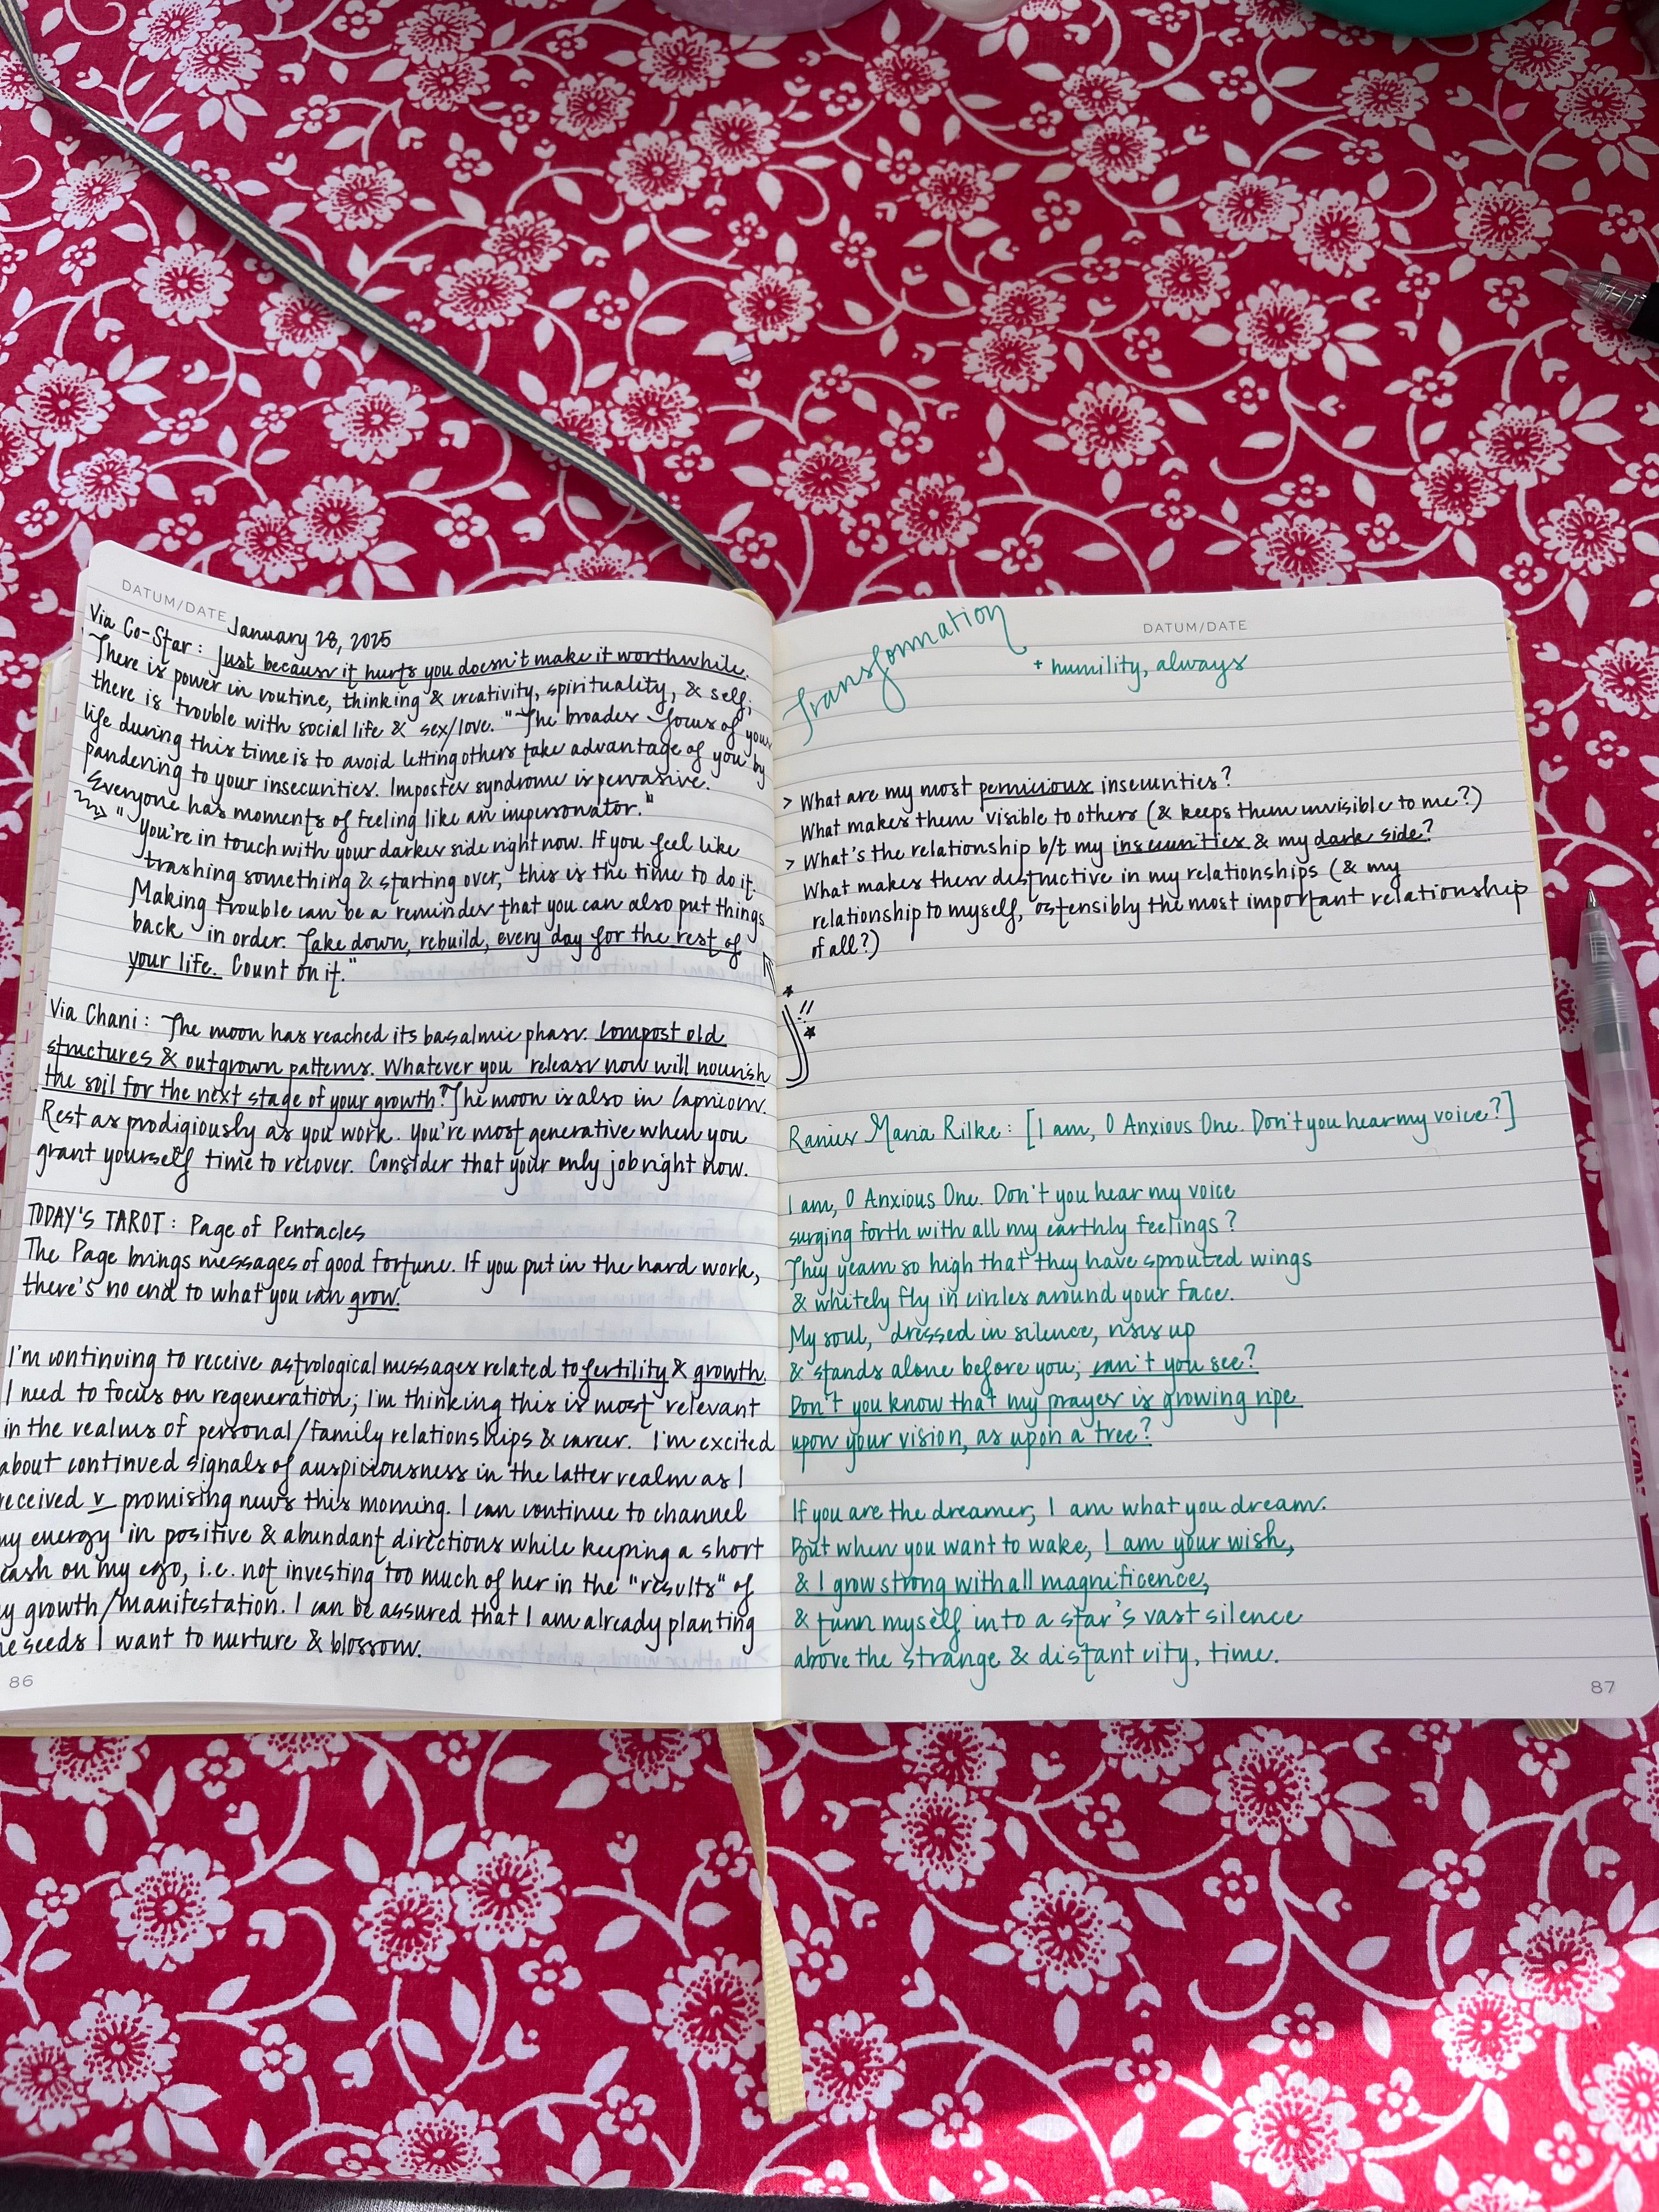 DATUM/DATE January 28, 2025
Via Co-Star: Just because it hurts you doesn't make it worthwhile.
There is power in routine, thinking & creativity, spirituality, & self;
there is trouble with social life & sex/love. "The broader focus of your
life during this time is to avoid letting others take advantage of you by
pandering to your insecurities. Imposter syndrome is pervasive.
Everyone has moments of feeling like an impersonator."
"You're in touch with your darker side right now. If you feel like
trashing something & starting over, this is the time to do it.
Making trouble can be a reminder that you can also put things
back in order. Take down, rebuild, every day for the rest of
your life. Count on it."
Via Chani: The moon has reached its basalmic phase. Compost old
structures & outgrown patterns. Whatever you release now will nourish
the soil for the next stage of your growth! The moon is also in Capricorn.
Rest as prodigiously as you work. You're most generative when you
grant yourself time to recover. Consider that your only job right now.
TODAY'S TAROT: Page of Pentacles
The Page brings messages of good fortune. If you put in the hard work,
there's no end to what you can grow.
I'm continuing to receive astrological messages related to fertility & growth.
I need to focus on regeneration; I'm thinking this is most relevant
in the realms of personal/family relationships & career. I'm excited
about continued signals of auspiciousness in the latter realm as I
received v promising news this morning. I can continue to channel
my energy in positive & abundant directions while keeping a short
leash on my ego, i.e. not investing too much of her in the "results" of
my growth/manifestation. I can be assured that I am already planting
the seeds I want to nurture & blossom.
86
Transformation
DATUM/DATE
+ humility, always
> What are my most pernicious insecurities?
What makes them visible to others (& keeps them invisible to me?)
> What's the relationship b/t my insecurities & my dark side?
What makes them destructive in my relationships (& my
relationship to myself, ostensibly the most important relationship
of all?)
!!
Rainer Maria Rilke: [I am, O Anxious One. Don't you hear my voice?]
I am, O Anxious One. Don't you hear my voice
surging forth with all my earthly feelings?
They yearn so high that they have sprouted wings
& whitely fly in circles around your face.
My soul, dressed in silence, rises up
& stands alone before you; can't you see?
Don't you know that my prayer is growing ripe
upon your vision, as upon a tree?
If you are the dreamer, I am what you dream.
But when you want to wake, I am your wish,
& I grow strong with all magnificence,
& turn myself into a star's vast silence
above the strange & distant city, time.
87